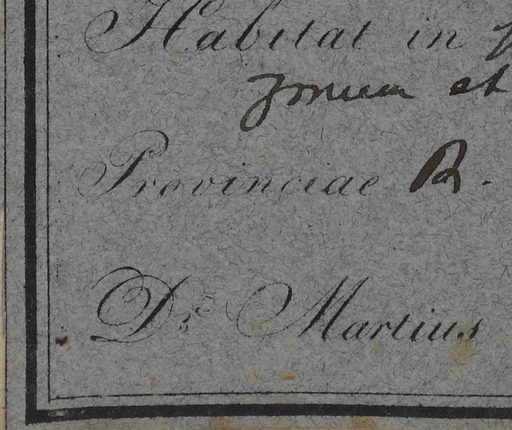 Habitat in
et
Provinciae R.
Dr. Martius